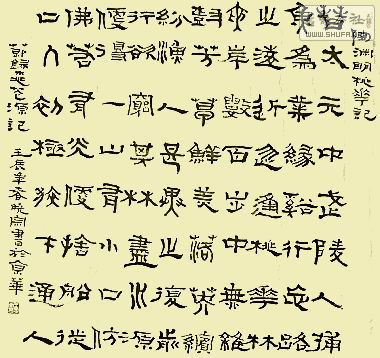 陶渊明桃花記
晋太元中武陵人捕
魚為業緣溪行忘路
之遠近忽逢桃花林
夾岸數百步中無雜
樹芳草鮮美落英繽
紛漁人甚異之復前
行欲窮其林盡水源
便得一山有小口仿
佛若有光便捨船從
口入初極狹才通人
節錄桃花源記 壬辰年春曉剛書於京華